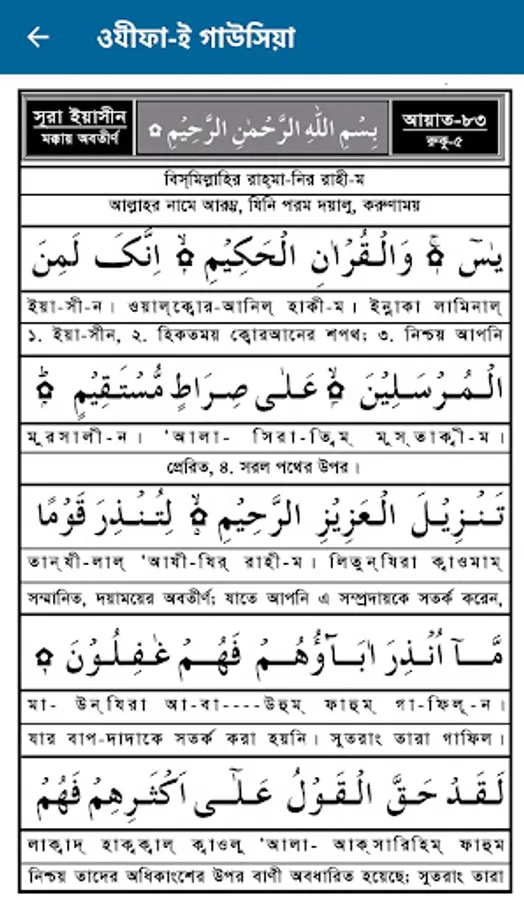 ওযীফা-ই গাউসিয়া
সূরা ইয়াসীন
মক্কায় অবতীর্ণ
بِسْمِ اللّٰهِ الرَّحْمٰنِ الرَّحِيْمِ ۝
আয়াত-৮৩
রুকু-৫
বিস্‌মিল্লাহির রাহ্‌মা-নির রাহী-ম
আল্লাহর নামে আরম্ভ, যিনি পরম দয়ালু, করুণাময়
يٰسٓ ۝ۚ وَالْقُرْاٰنِ الْحَكِيْمِ ۝ۙ اِنَّكَ لَمِنَ
ইয়া-সী-ন। ওয়াল্‌ক্বোর-আনিল্ হাকী-ম। ইন্নাকা লামিনাল্
১. ইয়াসীন, ২. হিকতময় ক্বোরআনের শপথ; ৩. নিশ্চয় আপনি
الْمُرْسَلِيْنَ ۝ۙ عَلٰى صِرَاطٍ مُّسْتَقِيْمٍ ۝ؕ
মুরসালী-ন। 'আলা- সিরা-ত্বিম্ মুস্‌তাক্বী-ম।
প্রেরিত, ৪. সরল পথের উপর।
تَنْزِيْلَ الْعَزِيْزِ الرَّحِيْمِ ۝ۙ لِتُنْذِرَ قَوْمًا
তান্‌যী-লাল্ 'আযী-যির্ রাহী-ম। লিতুন্‌যিরা ক্বাওমাম্
সম্মানিত, দয়াময়ের অবতীর্ণ; যাতে আপনি এ সম্প্রদায়কে সতর্ক করেন,
مَّآ اُنْذِرَ اٰبَآؤُهُمْ فَهُمْ غٰفِلُوْنَ ۝
মা- উন্‌যিরা আ-বা----উহুম্ ফাহুম্ গা-ফিলূ-ন।
যার বাপ-দাদাকে সতর্ক করা হয়নি। সুতরাং তারা গাফিল।
لَقَدْ حَقَّ الْقَوْلُ عَلٰٓى اَكْثَرِهِمْ فَهُمْ
লাক্বাদ্ হাক্বক্বাল্ ক্বাওলু 'আলা- আক্‌সারিহিম্ ফাহুম
নিশ্চয় তাদের অধিকাংশের উপর বাণী অবধারিত হয়েছে; সুতরাং তারা